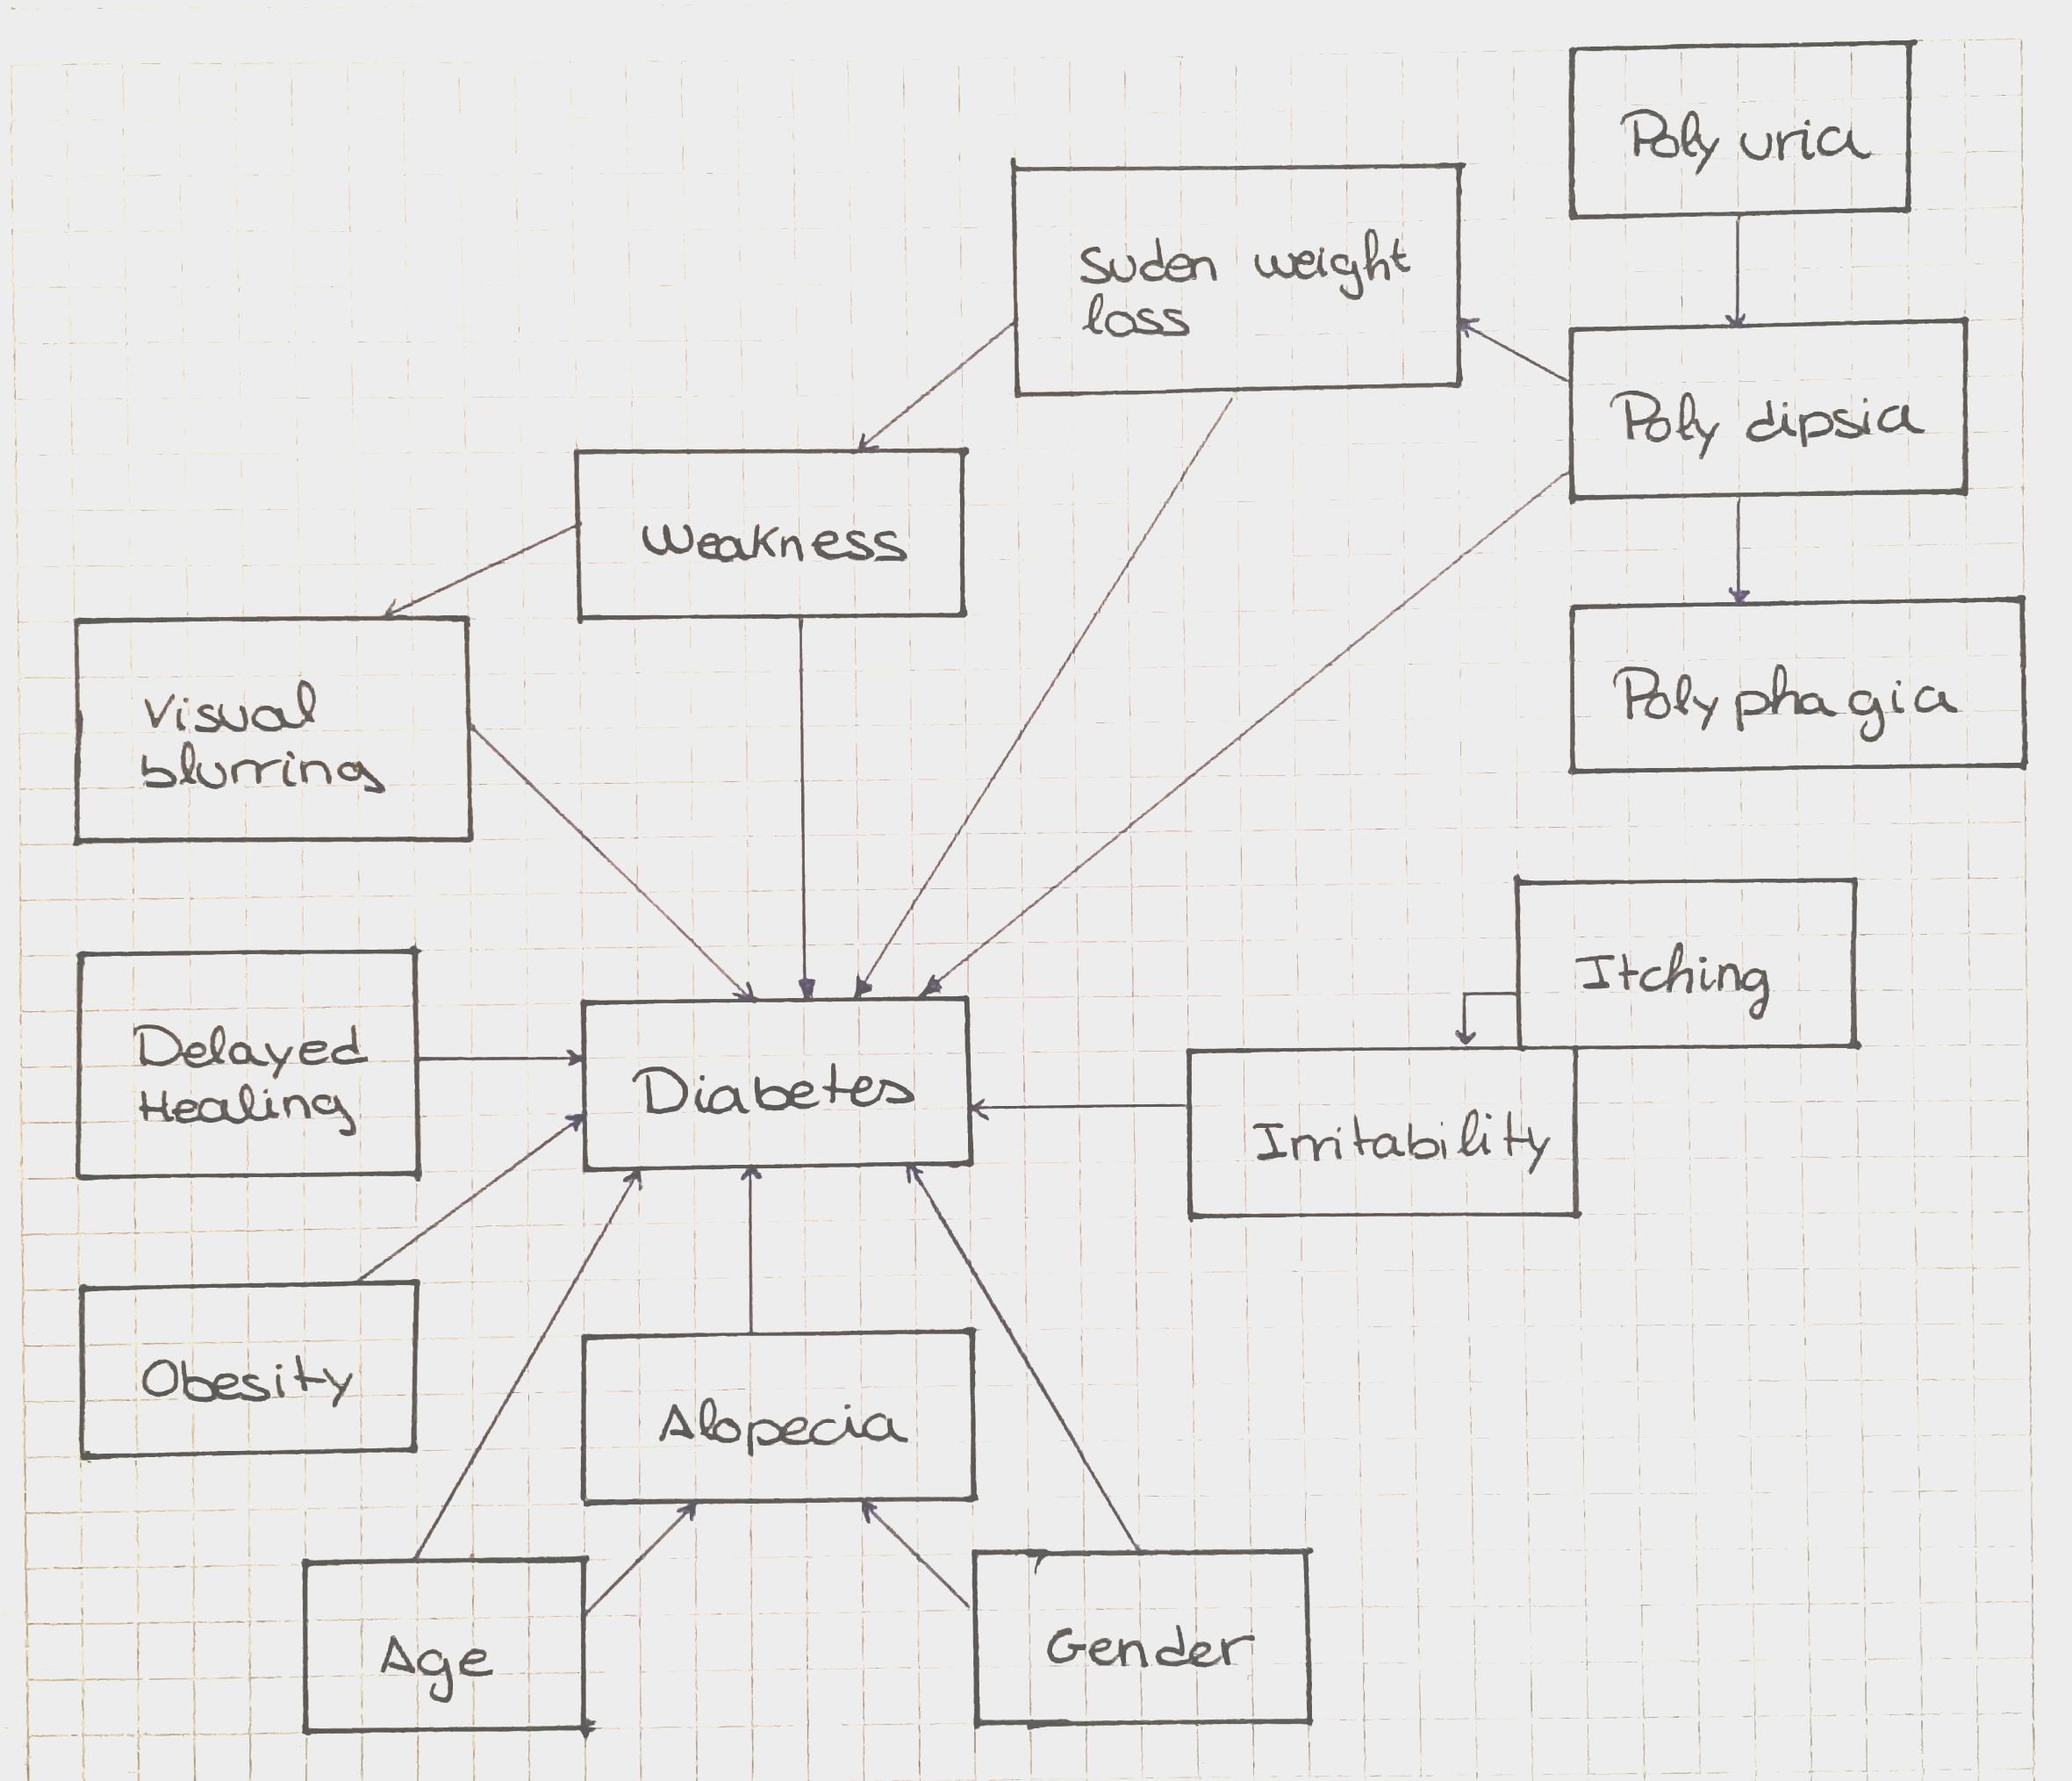 Poly uria
Suden weight
loss
Poly dipsia
Weakness
Poly phagia
Visual
blurring
Itching
Delayed
Healing
Diabetes
Irritability
Obesity
Alopecia
Age
Gender